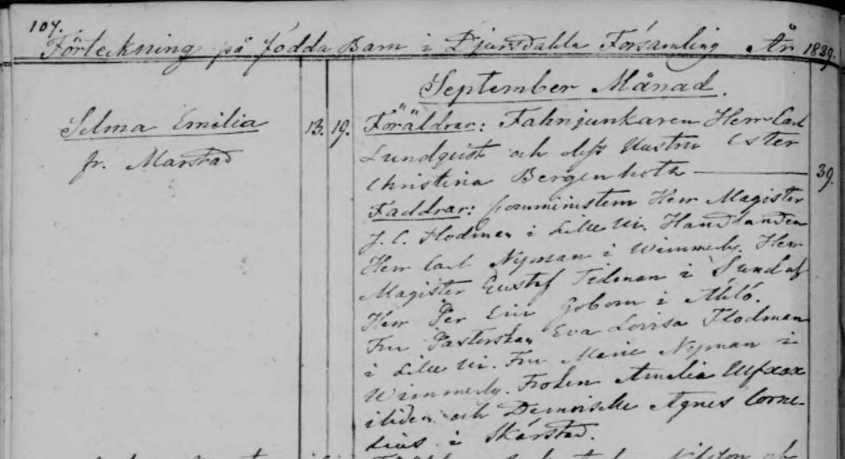 107.
Förteckning på födda Barn i Djursdahla Församling År 1839.
September Månad.
Selma Emilia 13. 19. Föräldrar: Fahnjunkaren Herr Carl
fr. Marstad Lundquist och dess Hustru Ester
Christina Bergenholtz 39.
Faddrar: Comministern Herr Magister
J. C. Flodman i Lille Handlanden
Herr Carl Nyman i Wimmerby. Herr
Magister Gustaf Tedman i
Herr Per Eric Gobom i
Fru Pastorskan Eva Lovisa Flodman
i Lille Fru Marie Nyman i
Wimmerby. Fröken Amelia
och Demoiselle Agnes Corne-
lius i Skärstad.